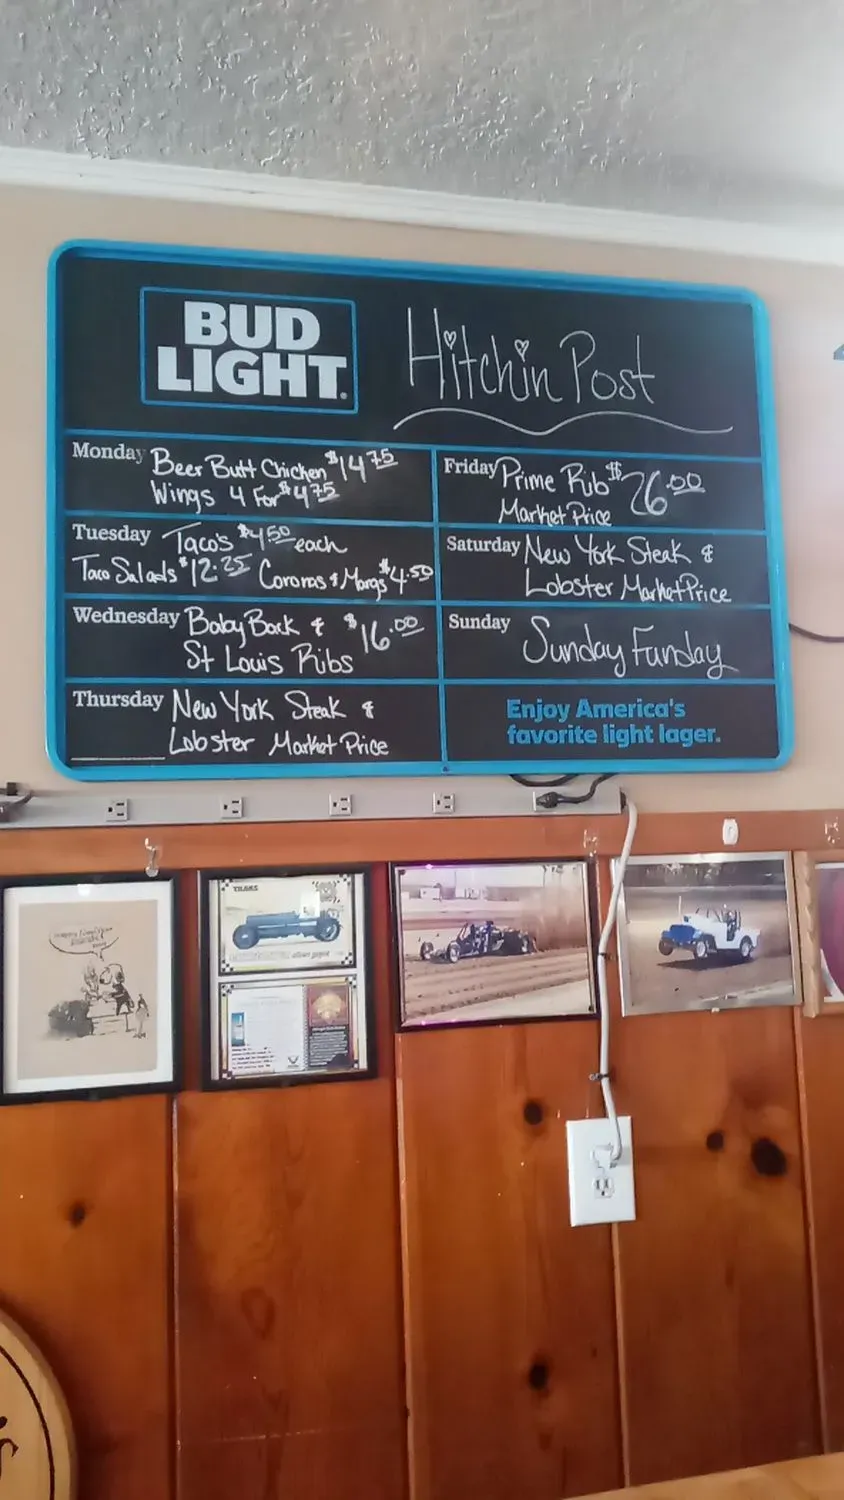 BUD
LIGHT.
Hitchin Post
Monday
Beer Butt Chicken $14.75
Wings 4 For $4.75
Tuesday
Taco's $4.50 each
Taco Salads $12.25 Coronas & Margs $4.50
Wednesday
Baby Back & $16.00
St Louis Ribs
Thursday
New York Steak &
Lobster Market Price
Friday
Prime Rib $26.00
Market Price
Saturday
New York Steak &
Lobster Market Price
Sunday
Sunday Funday
Enjoy America's
favorite light lager.